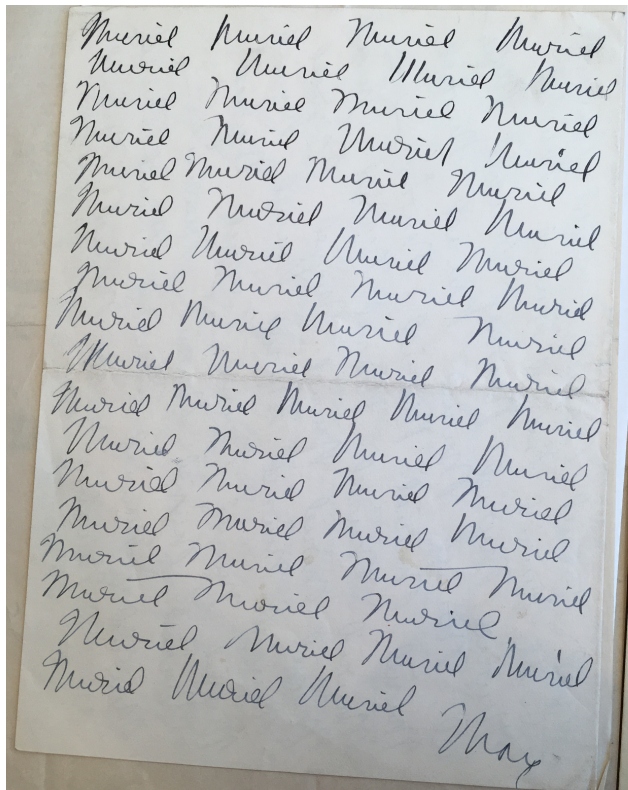 Muriel Muriel Muriel Muriel
Muriel Muriel Muriel Muriel
Muriel Muriel Muriel Muriel
Muriel Muriel Muriel Muriel
Muriel Muriel Muriel Muriel
Muriel Muriel Muriel Muriel
Muriel Muriel Muriel Muriel
Muriel Muriel Muriel Muriel
Muriel Muriel Muriel Muriel
Muriel Muriel Muriel Muriel
Muriel Muriel Muriel Muriel Muriel
Muriel Muriel Muriel Muriel
Muriel Muriel Muriel Muriel
Muriel Muriel Muriel Muriel
Muriel Muriel Muriel Muriel
Muriel Muriel Muriel
Muriel Muriel Muriel Muriel
Muriel Muriel Muriel
May